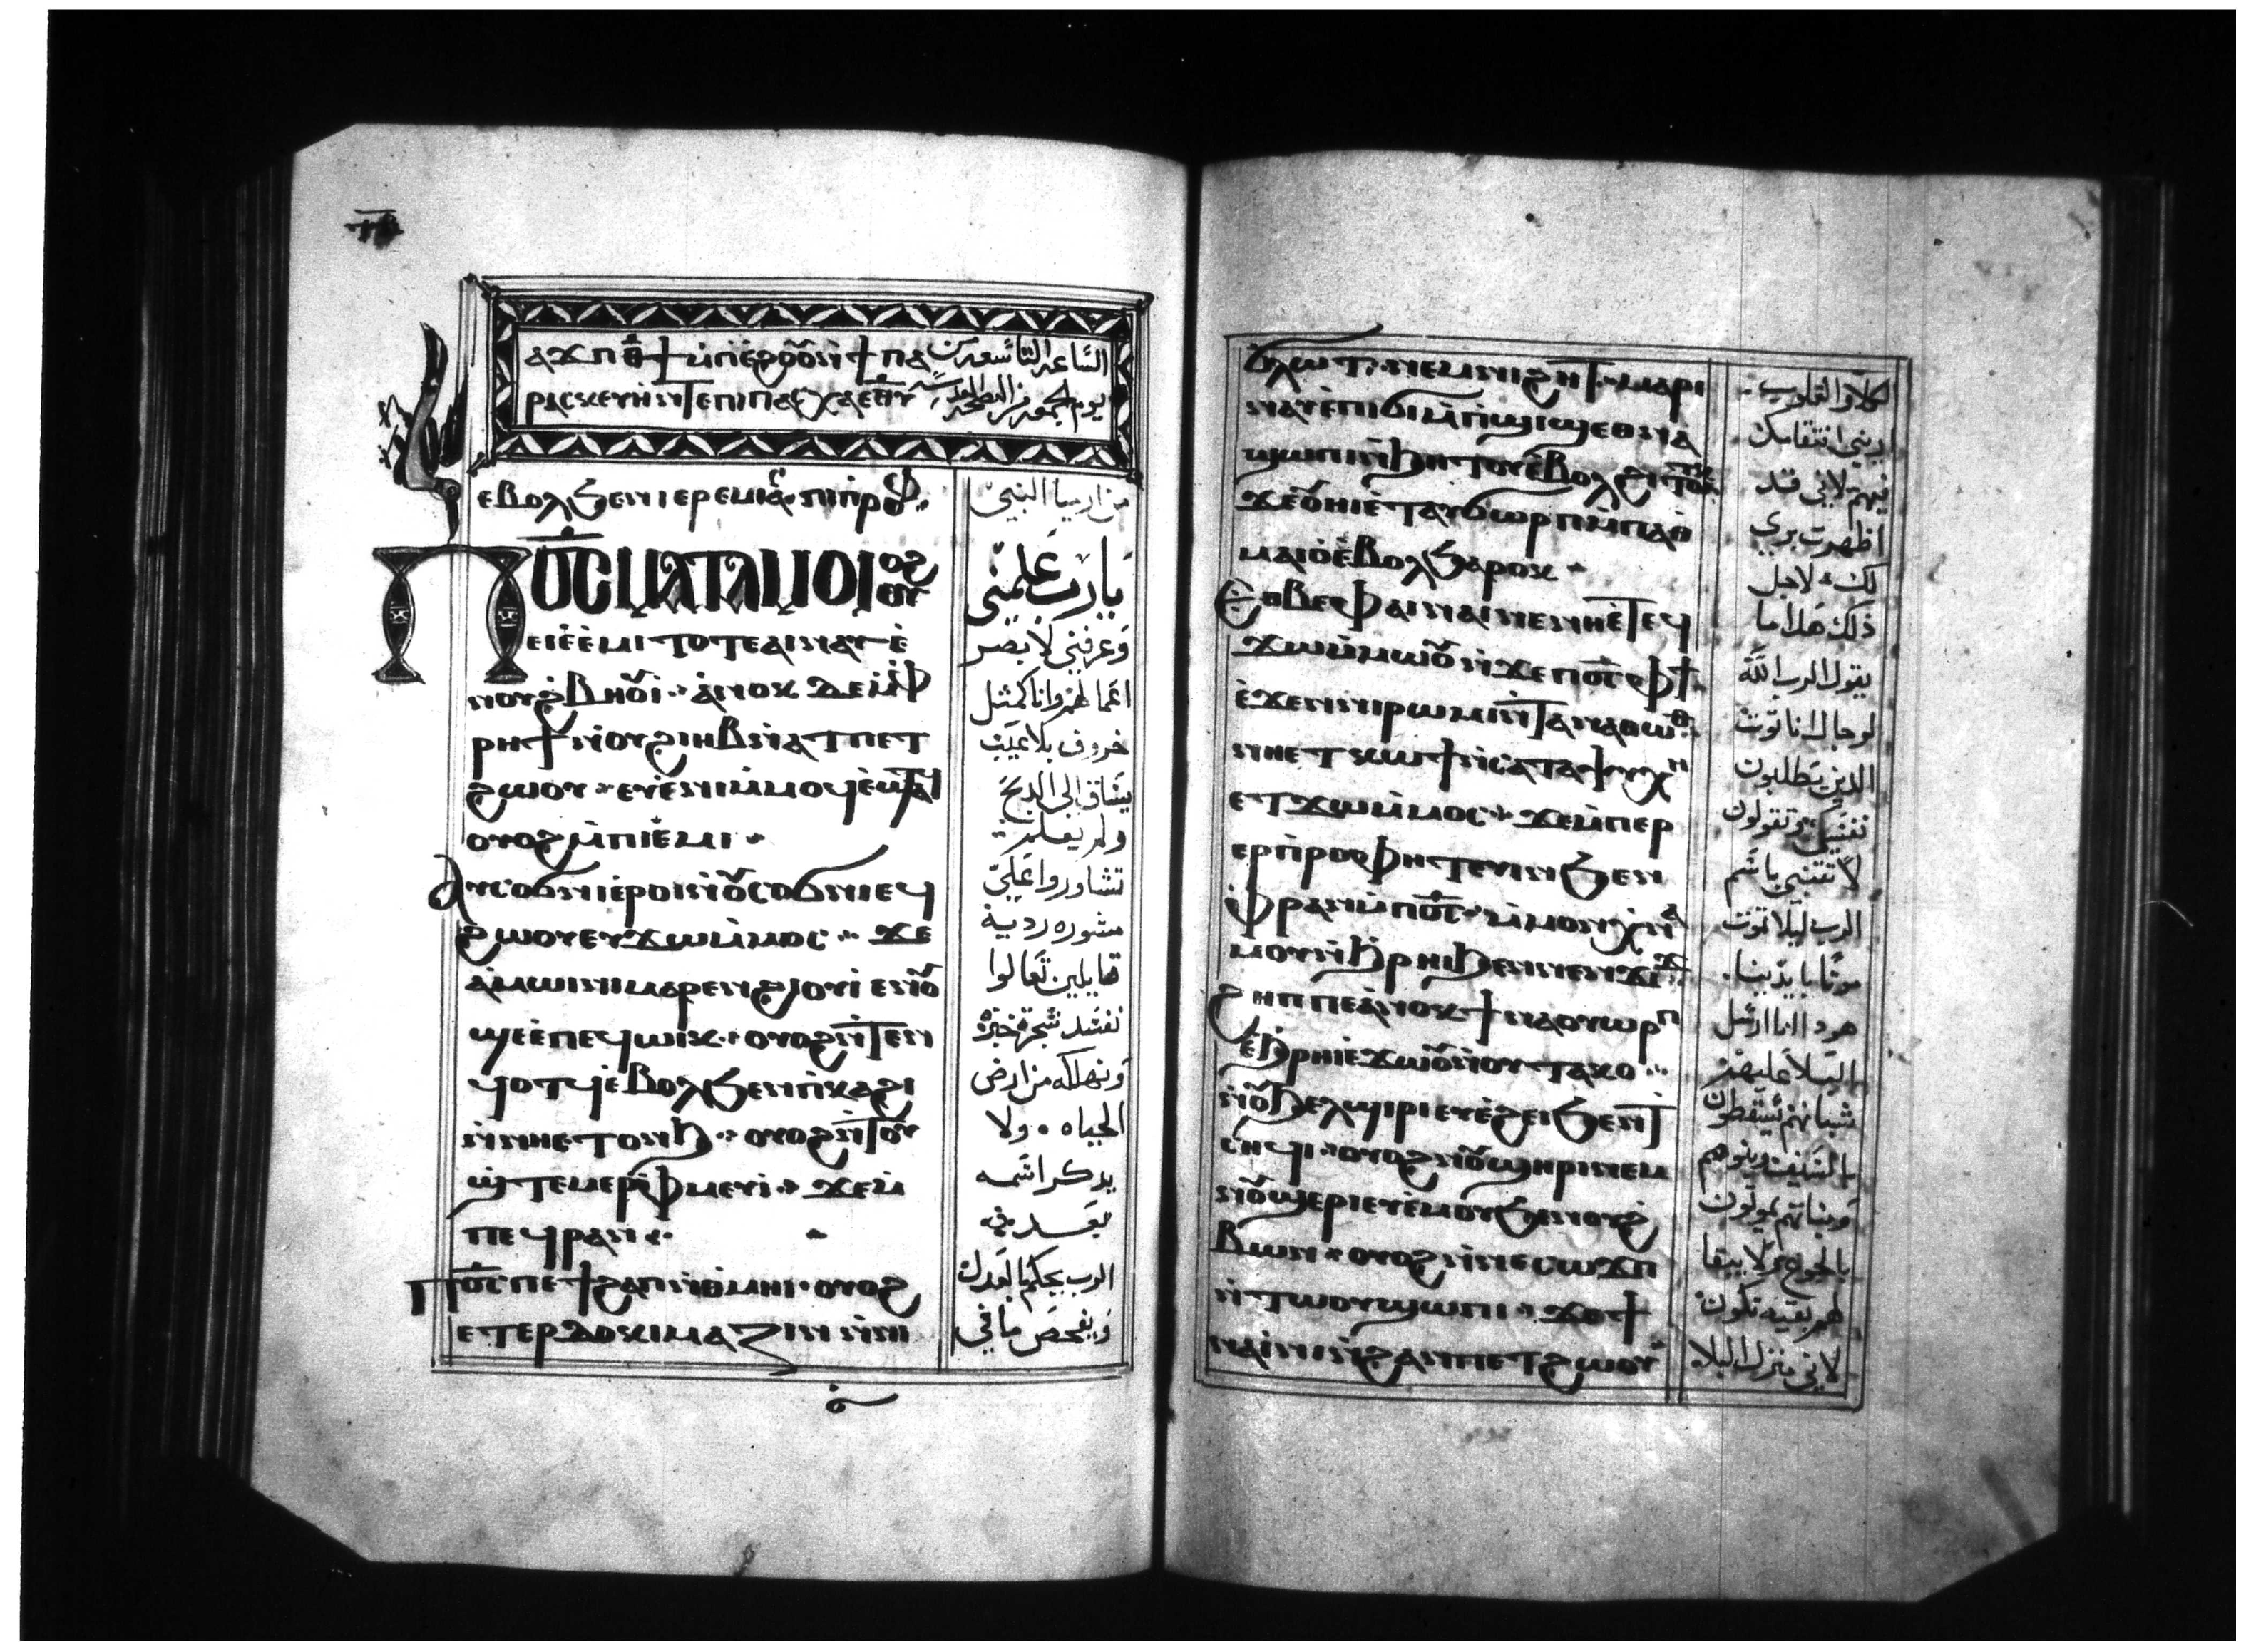 ⲁϫⲡ ⲑ̄ϯ ⲙ̀ⲡⲓⲉ̀ϩⲟⲟⲩ ⲛ̀ϯⲡⲁ
ⲣⲁⲥⲕⲉⲩⲏ ⲛ̀ⲧⲉⲡⲓⲡⲁⲥⲭⲁ ⲉⲑⲩ
الساعه التاسعه من
يوم الجمعه من البصخه المقدسه
ⲉⲃⲟⲗϧⲉⲛⲓⲉⲣⲉⲙⲓⲁⲥ ⲡⲓⲡⲣⲟⲫ
ⲡⲟ̅ⲥ̅ ⲙⲁⲧⲁⲙⲟⲓ ⲟⲩⲟϩ
ⲉⲓⲉ̀ⲉ̀ⲙⲓ ⲧⲟⲧⲉ ⲁⲓⲛⲁⲩ ⲉ̀
ⲛⲟⲩϩⲃⲏⲟⲩⲓ· ⲁ̀ⲛⲟⲕ ⲇⲉ ⲙ̀ⲫ
ⲣⲏϯ ⲛ̀ⲟⲩϩⲓⲏⲃ ⲛ̀ⲁⲧⲡⲉⲧ
ϩⲱⲟⲩ· ⲉⲩⲉ̀ⲛ ⲙ̀ⲙⲟϥ ⲉ̀ϣⲁⲧϥ
ⲟⲩⲟϩ ⲙ̀ⲡⲓⲉ̀ⲙⲓ·
ⲁⲩⲥⲟϭⲛⲓ ⲉ̀ⲣⲟⲓ ⲛ̀ⲟⲩⲥⲟϭⲛⲓ ⲉϥ
ϩⲱⲟⲩ ⲉⲩϫⲱ ⲙ̀ⲙⲟⲥ· ϫⲉ
ⲁ̀ⲙⲱⲓⲛⲓ ⲙⲁⲣⲉⲛϩⲓⲟⲩⲓ̀ ⲉⲛⲟⲩ
ϣⲉ ⲉ̀ⲡⲉϥⲱⲓⲕ· ⲟⲩⲟϩ ⲛ̀ⲧⲉⲛ
ϥⲟⲧϥ ⲉ̀ⲃⲟⲗϧⲉⲛ ⲡ̀ⲕⲁϩⲓ
ⲛ̀ⲛⲏⲉⲧⲟⲛϧ· ⲟⲩⲟϩ ⲛ̀ⲧⲟⲩ
ϣ̀ⲧⲉⲙⲉⲣⲫ̀ⲙⲉⲩⲓ· ϫⲉ ⲙ̀
ⲡⲉϥⲣⲁⲛ
ⲡⲟ̅ⲥ̅ ⲡⲉ ϯϩⲁⲡ ⲛ̀ⲑⲙⲏⲓ· ⲟⲩⲟϩ
ⲉⲧⲉⲣⲇⲟⲕⲓⲙⲁⲍⲓⲛ ⲛ̀ⲛⲓ
من ارميا النبي
يارب علمني
وعرفني لابصر
اعمالهم وانا كمثل
خروف بلا عيب
يساق الى الذبح
ولم يعلم
تشاوروا علي
مشوره رديه
قايلين تعالوا
نفسد شجرة خبزه
ونهلكه من ارض
الحياه ولا
يذكر اسمه
بعد
الرب يحكم بالعدل
ويفحص ما في
ϭⲗⲱⲧ ⲛⲉⲙ ⲛⲓϩⲏⲧ· ⲙⲁⲣⲓ
ⲛⲁⲩ ⲉ̀ⲡⲓϭⲓ ⲙ̀ⲡϣⲓϣ ⲉⲑⲛⲁ
ϣⲱⲡⲓ ⲛ̀ϧⲏⲧⲟⲩ ⲉ̀ⲃⲟⲗϩⲓⲧⲟⲧⲕ
ϫⲉ ⲟⲩⲏⲓ ⲉ̀ⲧⲁⲩϭⲱⲣⲡ ⲙ̀ⲡⲁⲑ
ⲙⲁⲓⲟ ⲉ̀ⲃⲟⲗϧⲁⲣⲟⲕ·
ⲉⲑⲃⲉⲫⲁⲓ ⲛⲁⲓ ⲛⲉ ⲛⲏⲉ̀ⲧⲉϥ
ϫⲱ ⲙ̀ⲙⲱⲟⲩ ⲛ̀ϫⲉ ⲡⲟ̅ⲥ̅ ⲫϯ
ⲉ̀ϫⲉⲛ ⲛⲓⲣⲱⲙⲓ ⲛ̀ⲧⲁⲛⲁⲑⲱⲑ
ⲛⲏⲉⲧⲕⲱϯ ⲛ̀ⲥⲁ ⲧⲁⲯⲩⲭⲏ
ⲉⲧϫⲱ ⲙ̀ⲙⲟⲥ· ϫⲉ ⲙ̀ⲡⲉⲣ
ⲉⲣⲡⲣⲟⲫⲏⲧⲉⲩⲓⲛ ϧⲉⲛ
ⲫ̀ⲣⲁⲛ ⲙ̀ⲡⲟ̅ⲥ̅ ⲙ̀ⲙⲟⲛ ⲭⲛⲁ
ⲙⲟⲩ ⲛ̀ϧⲣⲏⲓ ϧⲉⲛ ⲛⲉⲛϫⲓϫ
ϩⲏⲡⲡⲉ ⲁ̀ⲛⲟⲕ ϯⲛⲁⲟⲩⲱⲣⲡ
ⲉ̀ϧⲣⲏⲓ ⲉ̀ϫⲱⲟⲩ ⲛ̀ⲟⲩⲧⲁⲕⲟ··
ⲛⲟⲩϧⲉⲗϣⲓⲣⲓ ⲉⲩⲉ̀ϩⲉⲓ ϧⲉⲛ ⲧ
ⲥⲏϥⲓ· ⲟⲩⲟϩ ⲛⲟⲩϣⲏⲣⲓ ⲛⲉⲙ
ⲛⲟⲩϣⲉⲣⲓ ⲉⲩⲉ̀ⲙⲟⲩ ϧⲉⲛ ⲟⲩϩ
ⲃⲱⲛ· ⲟⲩⲟϩ ⲛ̀ⲛⲉⲥⲱϫⲡ
ⲛ̀ⲧⲱⲟⲩ ϣⲱⲡⲓ· ϫⲉ ϯ
ⲛⲁⲓ̀ⲛⲓ ⲛ̀ϩⲁⲛⲡⲉⲧϩⲱⲟⲩ
الكلا والقلوب
اريني انتقامك
فيهم لاني قد
اظهرت بري
لك لاجل
ذلك هذا ما
يقول الرب الله
لرجال اناتوت
الذين يطلبون
نفسي وتقولون
لا تتنبى باسم
الرب ليلا تموت
موتا بايدينا
هوذا انا ارسل
البلا عليهم
شبانهم يسقطون
بالسيف وبنوهم
وبناتهم يموتون
بالجوع ولا يبقا
لهم بقيه تكون
لاني منزل البلا